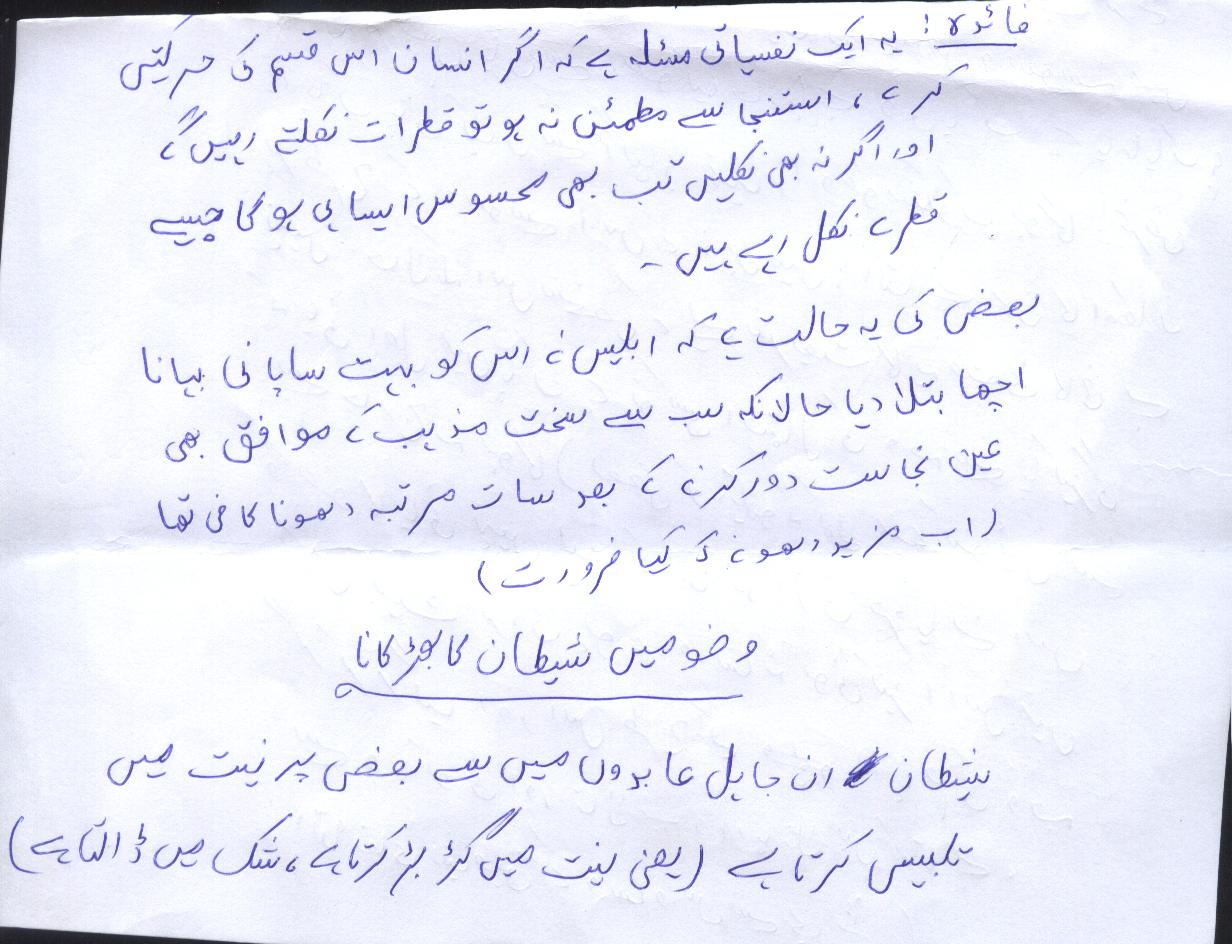 فائدہ: یہ ایک نفسیاتی مسئلہ ہے کہ اگر انسان اس قسم کی حرکتیں
کرے، استنجا سے مطمئن نہ ہو تو قطرات نکلتے رہیں گے
اور اگر نہ بھی نکلیں تب بھی محسوس ایسا ہی ہو گا جیسے
قطرے نکل رہے ہیں۔
بعض کی یہ حالت ہے کہ ابلیس نے اس کو بہت سا پانی بہانا
اچھا بتلا دیا حالانکہ سب سے سخت مذہب کے موافق بھی
عین نجاست دور کرنے کے بعد سات مرتبہ دھونا کافی تھا
(اب مزید دھونے کی کیا ضرورت)
وضو میں شیطان کا بھڑکانا
شیطان ان جاہل عابدوں میں سے بعض پر نیت میں
تلبیس کرتا ہے (یعنی نیت میں گڑ بڑ کرتا ہے، شک میں ڈالتا ہے)